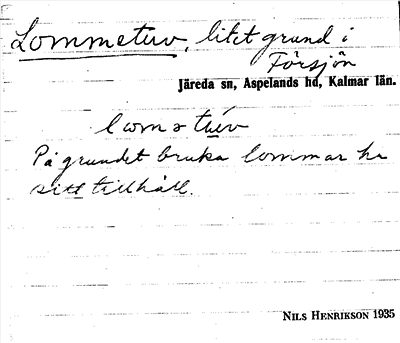 Lommetuv, litet grund i
Försjön
Järeda sn, Aspelands hd, Kalmar län.
På grundet bruka lommar ha
sitt tillhåll.
NILS HENRIKSON 1935